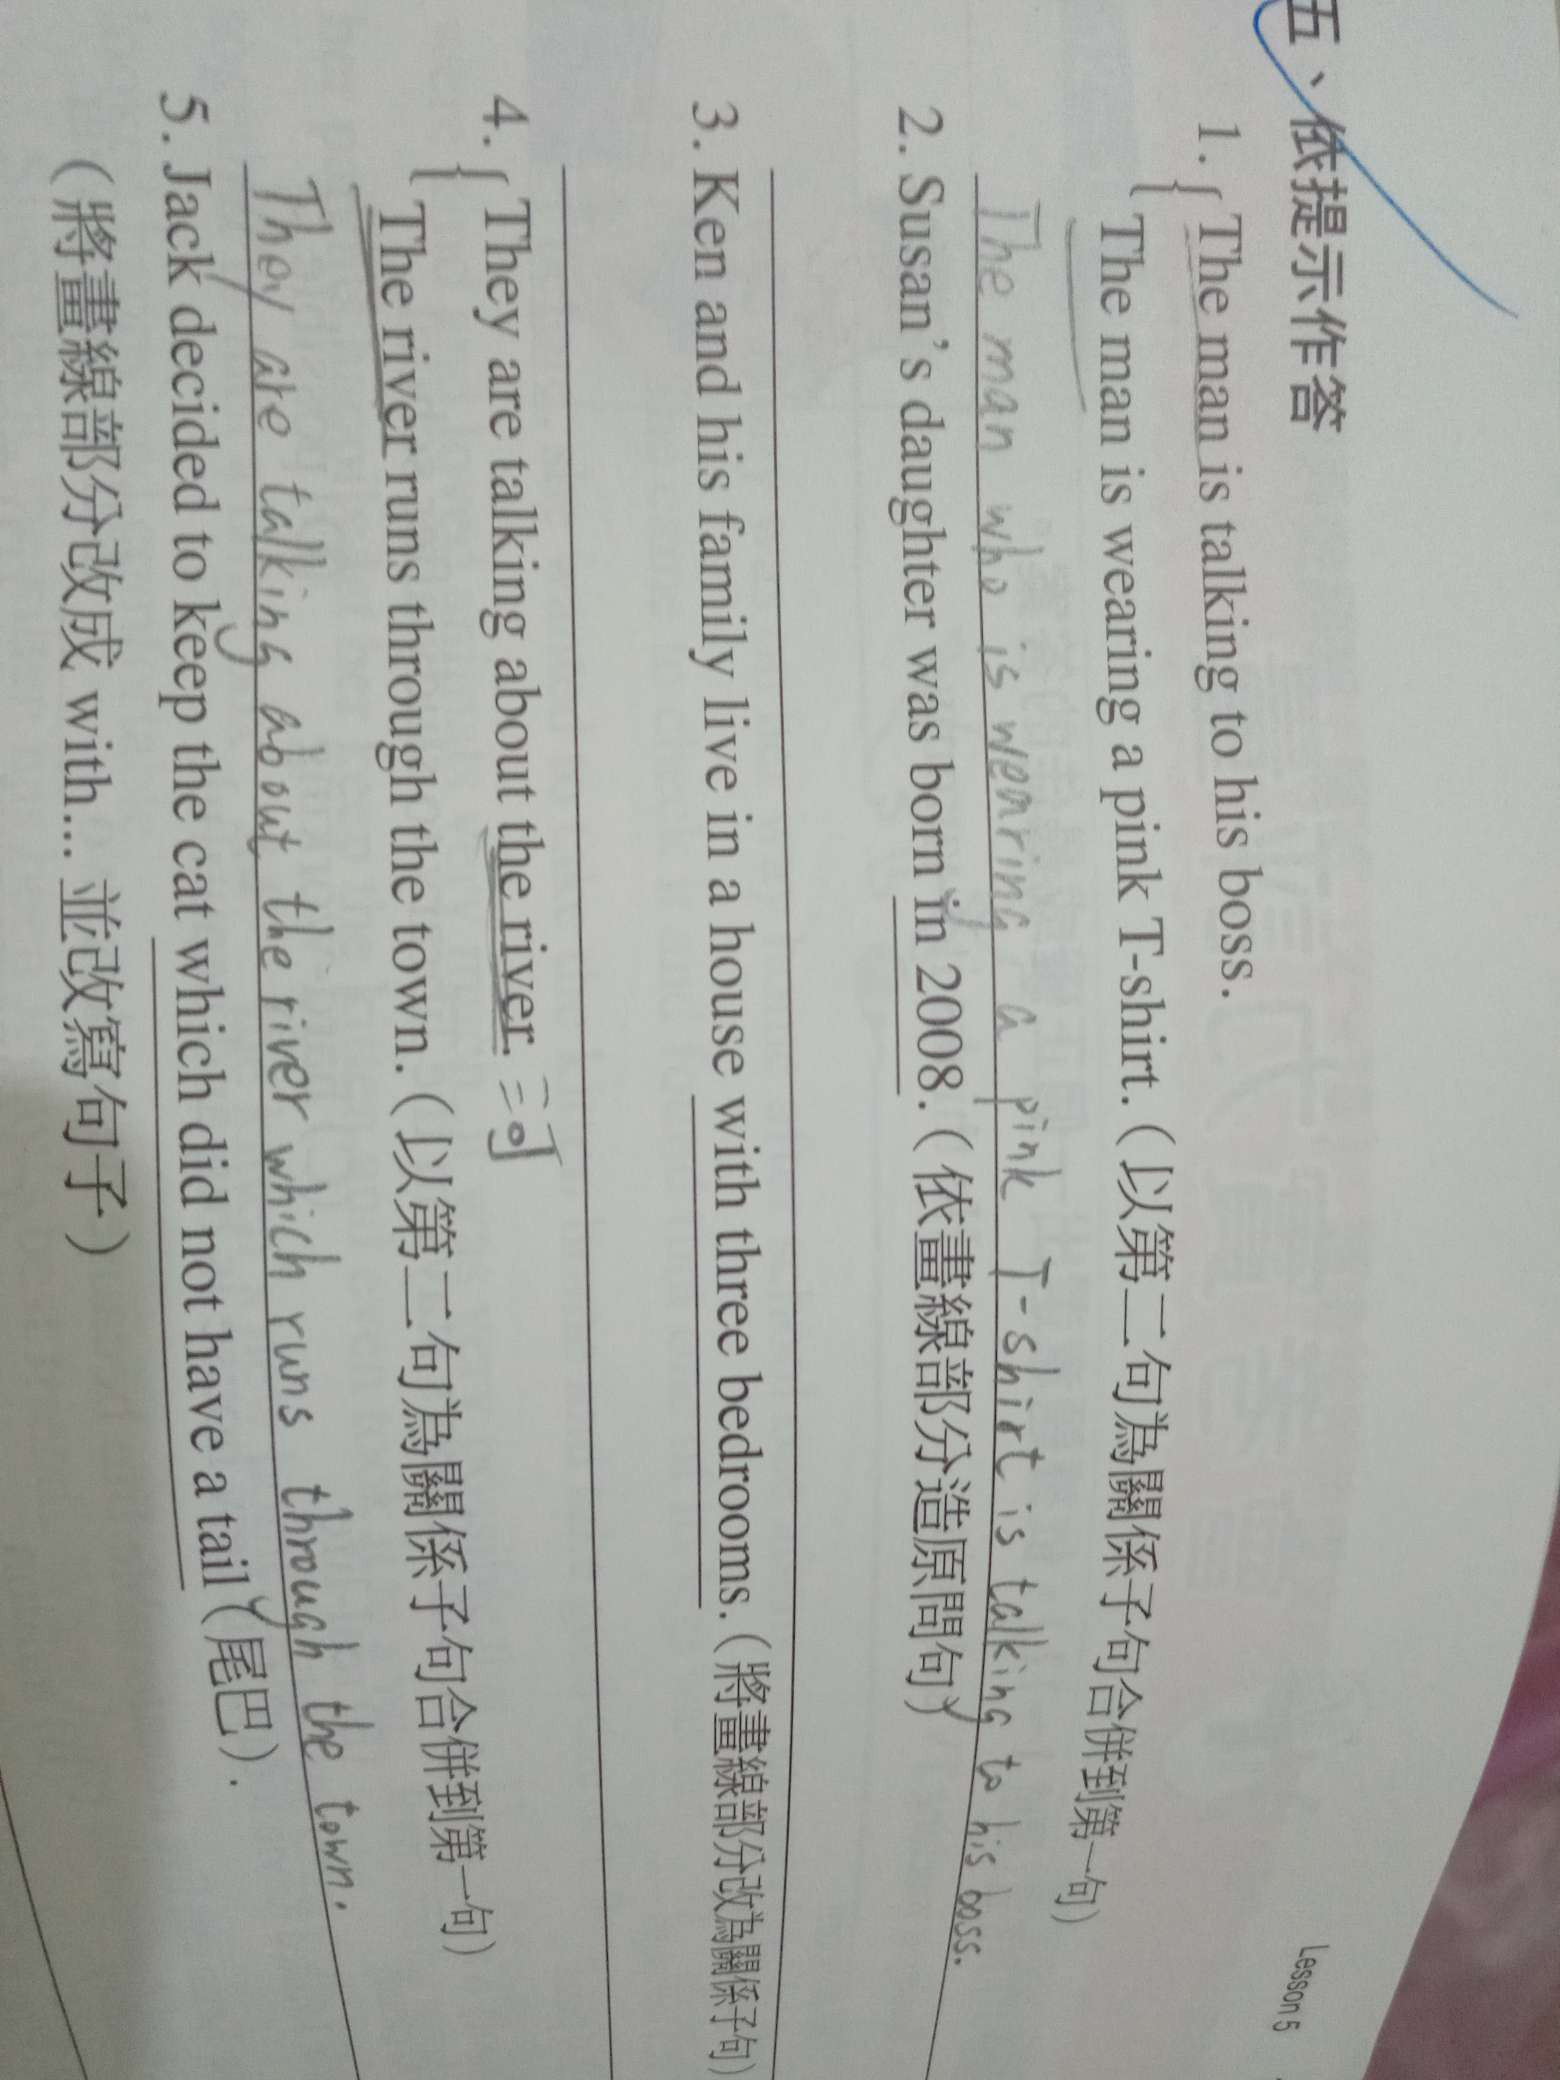 Lesson 5
五、依提示作答
1. The man is talking to his boss.
The man is wearing a pink T-shirt. (以第二句為關係子句合併到第一句)
The man who is wearing a pink T-shirt is talking to his boss.
2. Susan's daughter was born in 2008. (依畫線部分造原問句)
3. Ken and his family live in a house with three bedrooms. (將畫線部分改為關係子句)
4. They are talking about the river.
The river runs through the town. (以第二句為關係子句合併到第一句)
They are talking about the river which runs through the town.
5. Jack decided to keep the cat which did not have a tail (尾巴).
(將畫線部分改成 with... 並改寫句子)